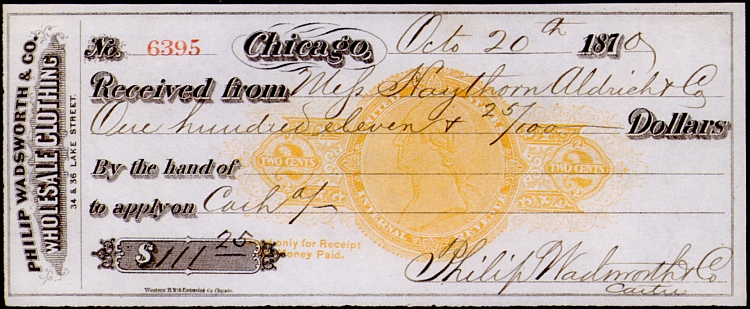 PHILIP WADSWORTH & CO.
WHOLESALE CLOTHING
34 & 36 LAKE STREET.
No. 6395 Chicago, Octo 20th 1870
Received from Mess Haythorn Aldrich & Co
One hundred eleven & 25/100 Dollars
TWO CENTS
2
TWO CENTS
2
UNITED STATES
INTERNAL REVENUE
By the hand of
to apply on Cash a/
$111 25
only for Receipt
Money Paid.
Philip Wadsworth & Co